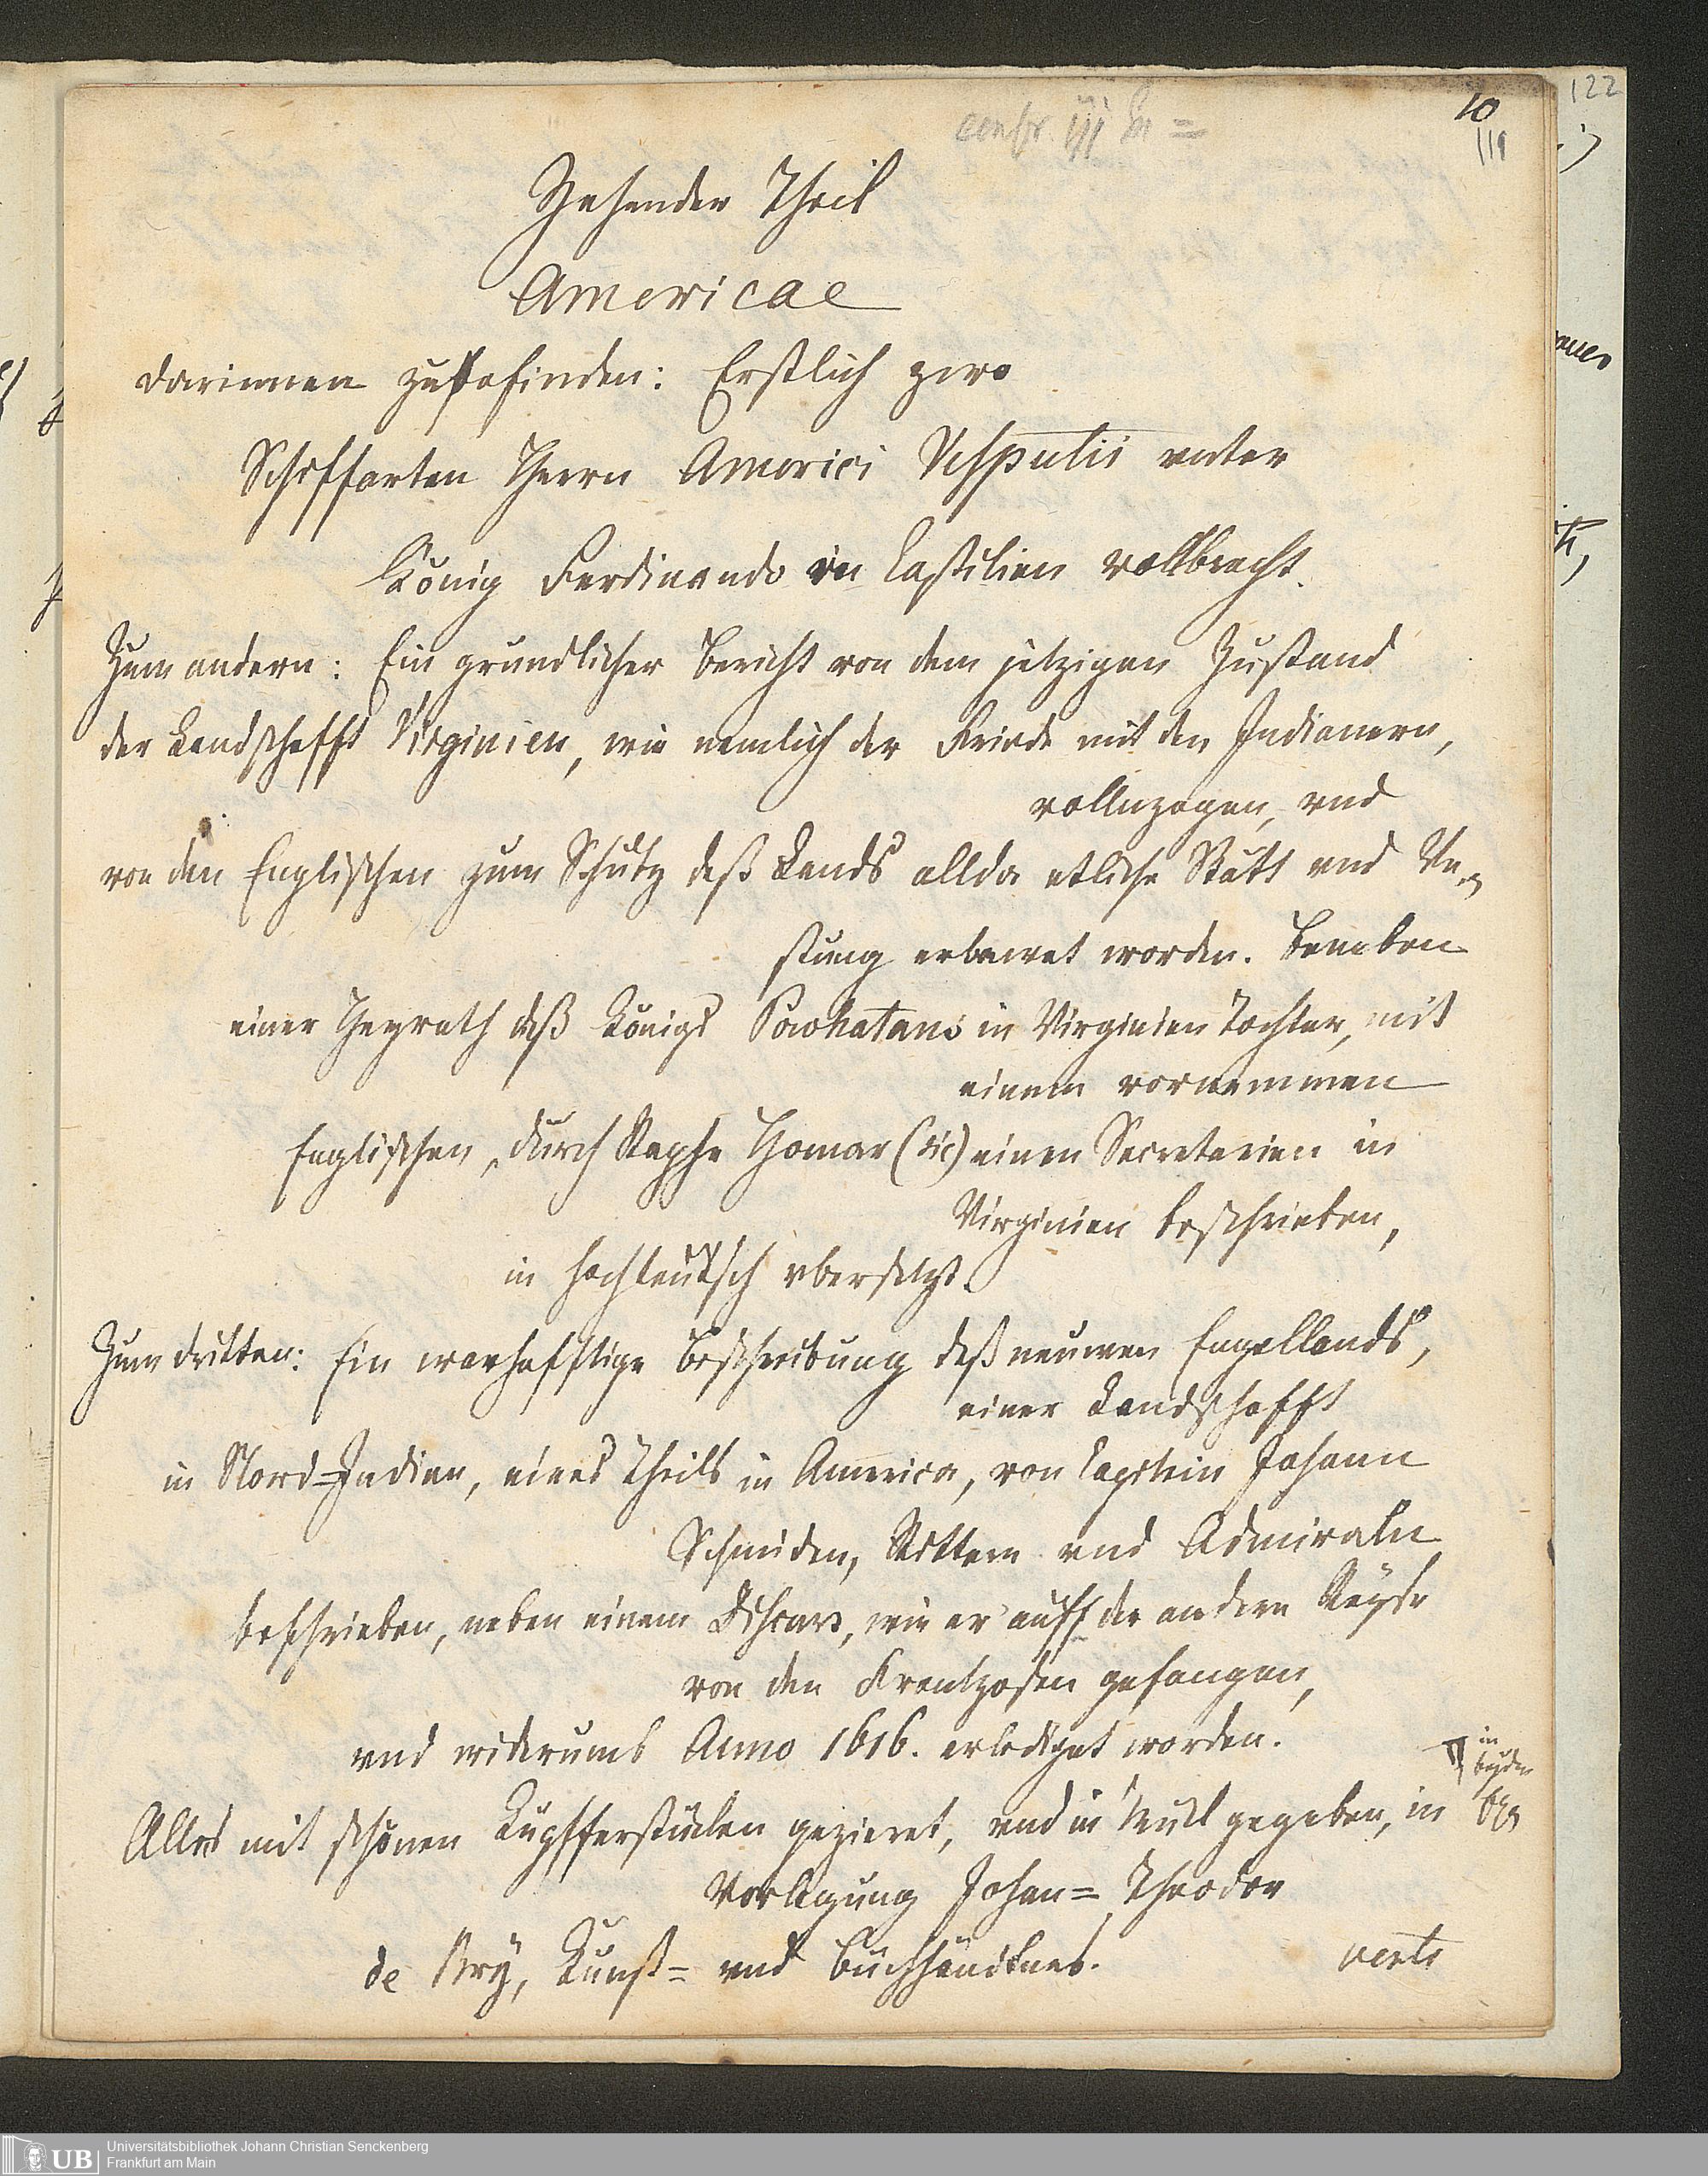 122
10
119
confr. III
Zehender Theil
Americae
darinnen zubefinden: Erstlich zwo
Schiffarten Herrn Americi Vesputii vnter
König Ferdinando in Castilien vollbracht.
Zum andern: Ein grundlicher Bericht von dem jetzigen Zustand
der Landschafft Virginien, wie nemlich der Friede mit den Indianern,
vollnzogen, vnd
von den Englischen zum Schutz deß Lands allda etliche Stätt vnd Ve-
stung erbawet worden. Beneben
einer Heyrath deß Königs Powhatans in Virginien Tochter, mit
einem vornemmen
Englischen, durch Raphe Hamar (sic) einen Secretarien in
Virginien beschrieben,
in hochteutsch vbersetzt.
Zum dritten: Ein warhafftige Beschreibung deß neuwen Engellands,
einer Landschafft
in Nord-Indien, eines Theils in America, von Capitein Johann
Schmiden, Rittern vnd Admiraln
beschrieben, neben einem Discurs, wie er auff der andern Reyse
von den Frantzosen gefangen,
vnd widerumb Anno 1616. erlediget worden.
Alles mit schönen Kupfferstücken gezieret, vnd in Druck gegeben, in
Vorlegung Johan= Theodor
de Bry, Kunst= vnd Buchhändlers.
verte
in
beyden
UB
Universitätsbibliothek Johann Christian Senckenberg
Frankfurt am Main